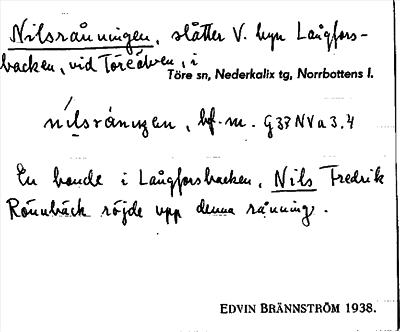 Nilsrånningen, slåtter V. byn Långfors-
backen, vid Töreälven, i
Töre sn, Nederkalix tg, Norrbottens l.
bf. m. G37NVa3.4
En bonde i Långforsbacken, Nils Fredrik
Rönnbäck röjde upp denna rånning.
EDVIN BRÄNNSTRÖM 1938.